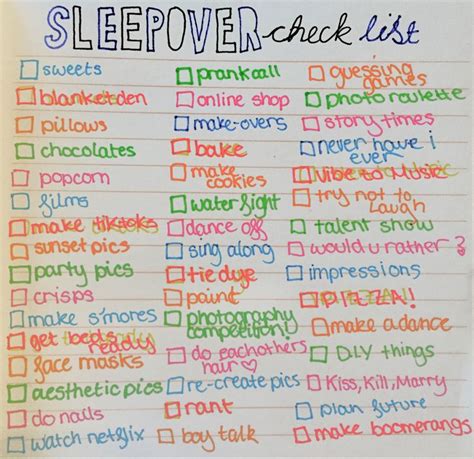 SLEEPOVER check list
sweets
blanket den
pillows
chocolates
popcorn
films
make tiktoks
sunset pics
party pics
crisps
make s'mores
get beds ready
face masks
aesthetic pics
do nails
watch netflix
prank call
online shop
make-overs
bake
make
cookies
water fight
dance off
sing along
tie dye
paint
photography
competition!
do eachothers
hair
re-create pics
rant
boy talk
guessing
games
photo roulette
story times
never have i
ever
vibe to music
try not to
laugh
talent show
would u rather?
impressions
PIZZA!
make a dance
DIY things
Kiss, Kill, Marry
plan future
make boomerangs